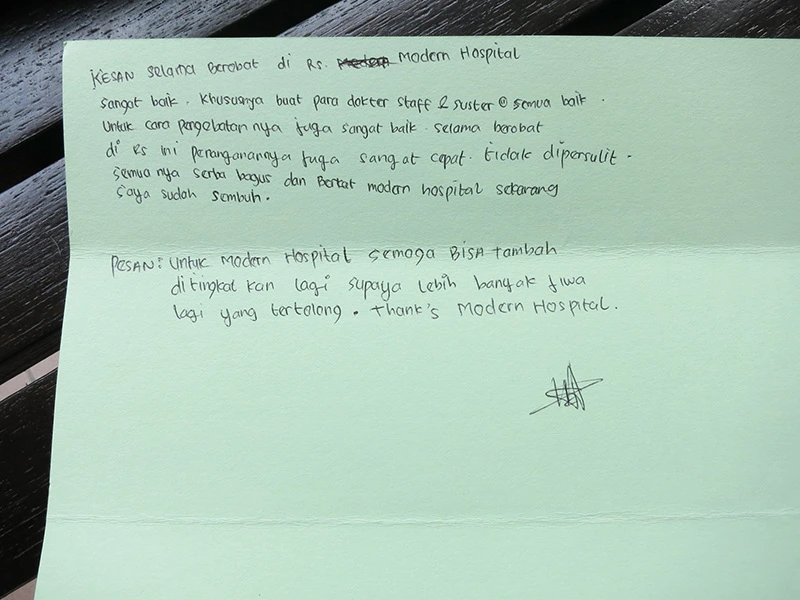 KESAN selama Berobat di Rs. Modern Hospital
sangat baik. Khususnya buat para dokter staff & suster @ semua baik.
Untuk cara pengobatannya juga sangat baik. selama berobat
di Rs ini penanganannya juga sangat cepat. tidak dipersulit.
semuanya serba bagus dan Berkat modern hospital sekarang
saya sudah sembuh.
PESAN: Untuk Modern Hospital semoga BISA tambah
ditingkat kan lagi supaya lebih banyak jiwa
lagi yang tertolong. Thank's Modern Hospital.